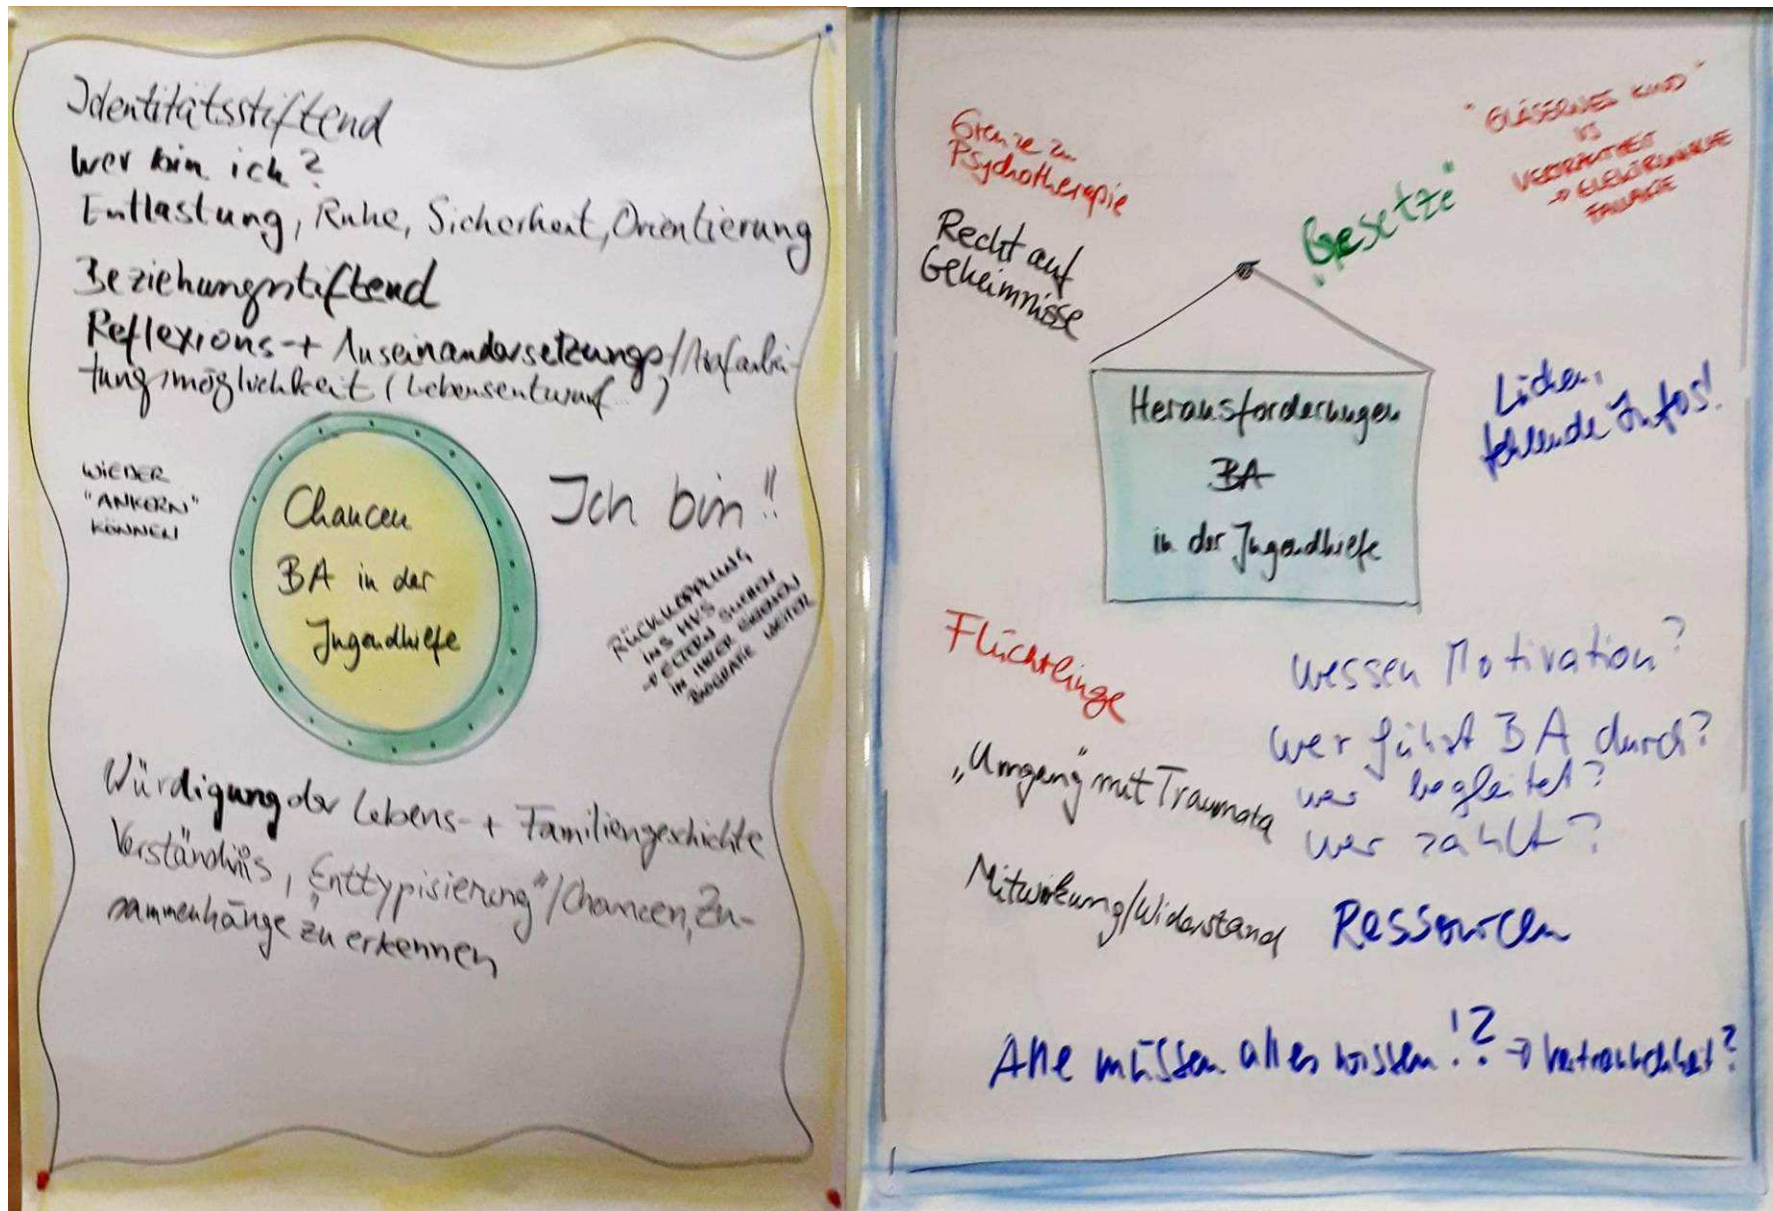 Identitätsstiftend
Wer bin ich?
Entlastung, Ruhe, Sicherheit, Orientierung
Beziehungsstiftend
Reflexions- + Auseinandersetzungs/Aufarbei-
tungsmöglichkeit (Lebensentwurf...)
WIEDER
"ANKERN"
KÖNNEN
Chancen
BA in der
Jugendhilfe
Ich bin!!
RÜCKKOPPLUNG
INS HVS
→ ELTERN SUCHEN
IN IHRER EIGENEN
BIOGRAFIE WEITER
Würdigung der Lebens- + Familiengeschichte
Verständnis, „Enttypisierung"/Chancen, Zu-
sammenhänge zu erkennen
Grenze zu
Psychotherapie
Recht auf
Geheimnisse
"Gesetze"
"GLÄSERNES KIND"
VS
VERTRAUTHEIT
→
Herausforderungen
BA
in der Jugendhilfe
Lücken,
fehlende Infos!
Flüchtlinge
„Umgang" mit Traumata
Mitwirkung/Widerstand
wessen Motivation?
wer führt BA durch?
wer begleitet?
wer zahlt?
Ressourcen
Alle müssen alles wissen!? → Vertraulichkeit?